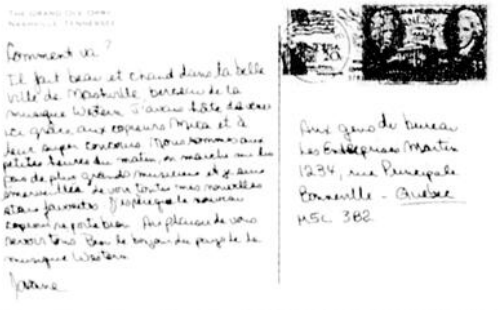 THE GRAND OLE OPRY
NASHVILLE, TENNESSEE
Comment va?
Il fait beau et chaud dans ta belle
ville de Nashville berceau de la
musique Western. J'avais hâte de venir
ici grâce aux copieurs Mita et à
leur super concours. Nous sommes aux
petites heures du matin, on marche sur les
pas de plus grands musiciens et je suis
émerveillée de voir toutes mes nouvelles
stars favorites. J'espère que le nouveau
copieur se porte bien. Au plaisir de vous
revoir tous. Ben le bonjour du pays de la
musique Western
Aux gens du bureau
Les Entreprises Martin
1234, rue Principale
Bonneville - Québec
M5C 3B2